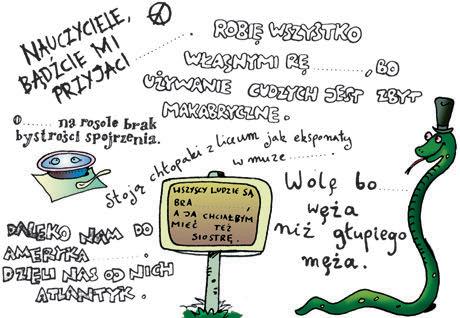 NAUCZYCIELE,
BĄDŹCIE MI
PRZYJACI........
ROBIĘ WSZYSTKO
WŁASNYMI RĘ........, BO
UŻYWANIE CUDZYCH JEST ZBYT
MAKABRYCZNE.
O...... na rosole brak
bystrości spojrzenia.
Stoją chłopaki z liceum jak eksponaty
w muze........
WSZYSCY LUDZIE SĄ
BRA........,
A JA CHCIAŁBYM
MIEĆ TEŻ
SIOSTRĘ.
Wolę bo......
węża
niż głupiego
męża.
DALEKO NAM DO
AMERYKA........
DZIELI NAS OD NICH
ATLANTYK.